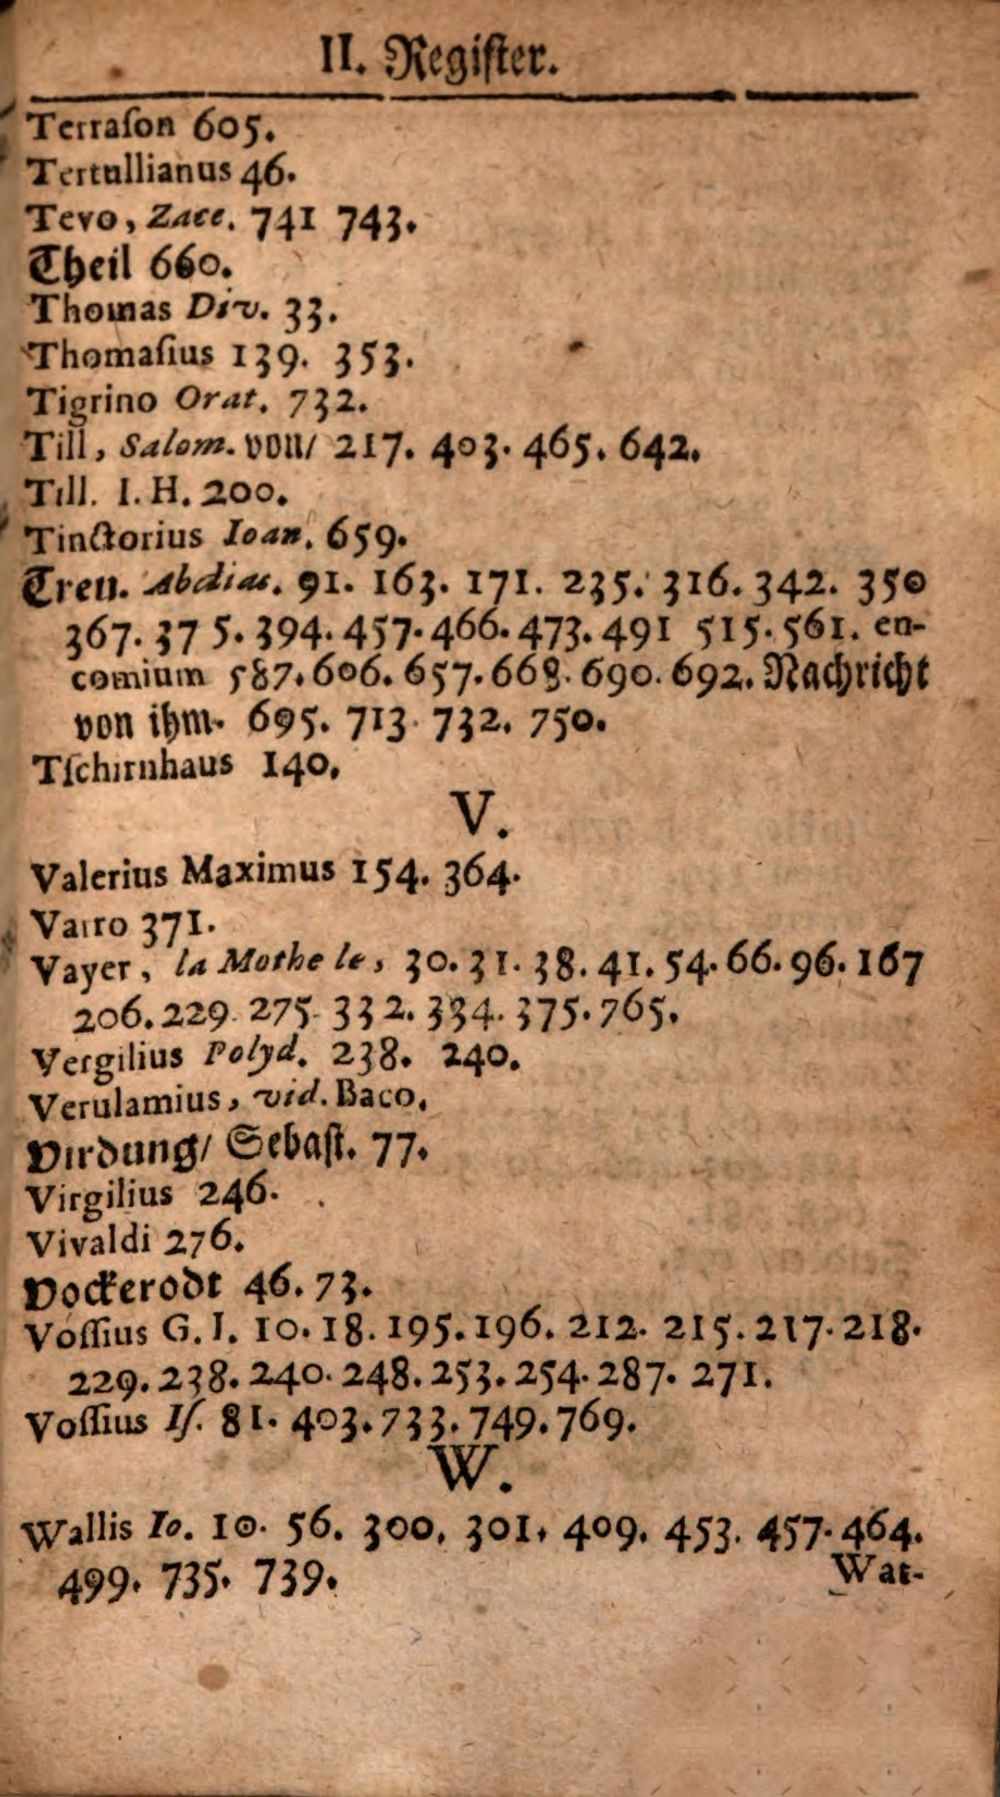 II. Regiſter.
Terraſon 605.
Tertullianus 46.
Tevo, Zacc. 741 743.
Theil 660.
Thomas Div. 33.
Thomaſius 139. 353.
Tigrino Orat. 732.
Till, Salom. von/ 217. 403. 465. 642.
Till. I. H. 200.
Tinctorius Ioan. 659.
Treu. Abdias. 91. 163. 171. 235. 316. 342. 350
367. 37 5. 394. 457. 466. 473. 491 515. 561. en-
comium 587. 606. 657. 668. 690. 692. Nachricht
von ihm. 695. 713. 732. 750.
Tſchirnhaus 140.
V.
Valerius Maximus 154. 364.
Varro 371.
Vayer, la Mothe le, 30. 31. 38. 41. 54. 66. 96. 167
206. 229. 275. 332. 334. 375. 765.
Vergilius Polyd. 238. 240.
Verulamius, vid. Baco.
Virdung/ Sebaſt. 77.
Virgilius 246.
Vivaldi 276.
Vockerodt 46. 73.
Voſſius G. I. 10. 18. 195. 196. 212. 215. 217. 218.
229. 238. 240. 248. 253. 254. 287. 271.
Voſſius Iſ. 81. 403. 733. 749. 769.
W.
Wallis Io. 10. 56. 300. 301. 409. 453. 457. 464.
499. 735. 739.
Wat-